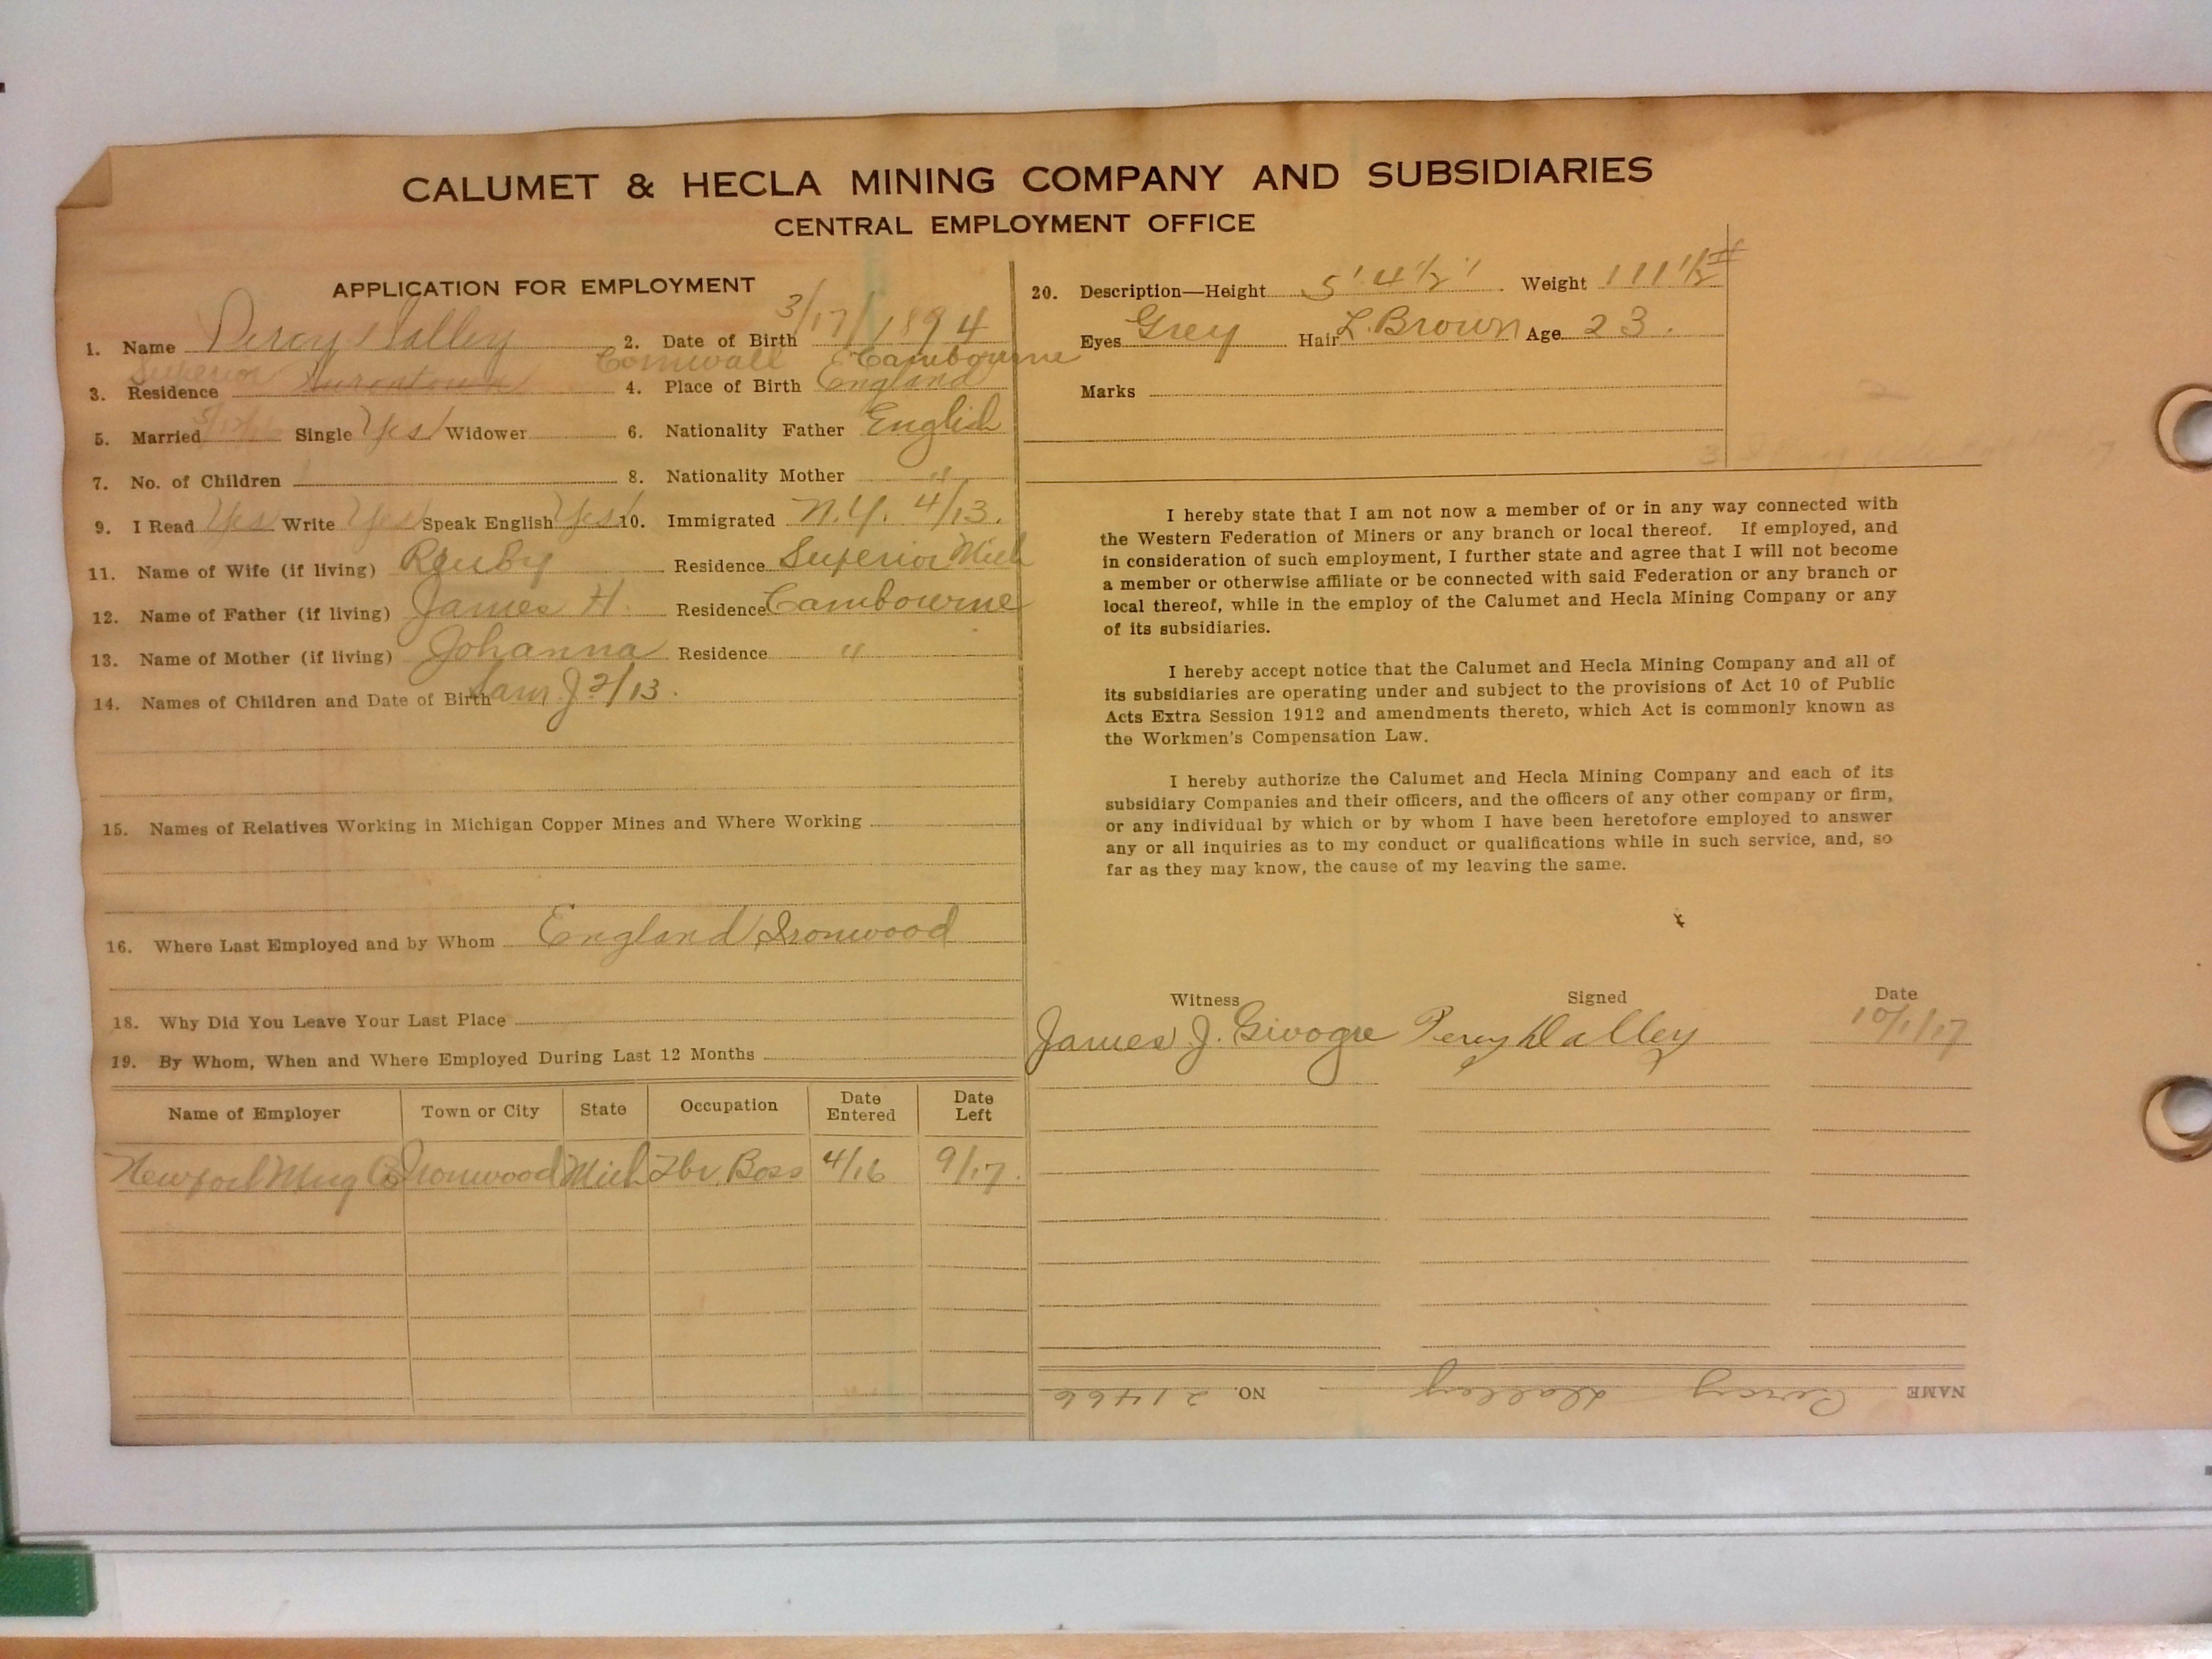 CALUMET & HECLA MINING COMPANY AND SUBSIDIARIES
CENTRAL EMPLOYMENT OFFICE
APPLICATION FOR EMPLOYMENT
1. Name Percy Dalley 2. Date of Birth 3/17/1894
Superior Cornwall Cambourne
3. Residence Hurontown 4. Place of Birth England
5. Married Single Yes Widower 6. Nationality Father English
7. No. of Children 8. Nationality Mother "
9. I Read Yes Write Yes Speak English Yes 10. Immigrated N.Y. 4/13.
11. Name of Wife (if living) Residence Superior Mich
12. Name of Father (if living) James H. Residence Cambourne
13. Name of Mother (if living) Johanna Residence "
14. Names of Children and Date of Birth J 2/13.
15. Names of Relatives Working in Michigan Copper Mines and Where Working
16. Where Last Employed and by Whom England, Ironwood
18. Why Did You Leave Your Last Place
19. By Whom, When and Where Employed During Last 12 Months
Name of Employer Town or City State Occupation Date Entered Date Left
Newport Mng Co Ironwood Mich Tbr. Boss 4/16 9/17.
20. Description—Height 5' 4 1/2" Weight 111 1/2 #
Eyes Grey Hair L. Brown Age 23.
Marks
I hereby state that I am not now a member of or in any way connected with
the Western Federation of Miners or any branch or local thereof. If employed, and
in consideration of such employment, I further state and agree that I will not become
a member or otherwise affiliate or be connected with said Federation or any branch or
local thereof, while in the employ of the Calumet and Hecla Mining Company or any
of its subsidiaries.
I hereby accept notice that the Calumet and Hecla Mining Company and all of
its subsidiaries are operating under and subject to the provisions of Act 10 of Public
Acts Extra Session 1912 and amendments thereto, which Act is commonly known as
the Workmen's Compensation Law.
I hereby authorize the Calumet and Hecla Mining Company and each of its
subsidiary Companies and their officers, and the officers of any other company or firm,
or any individual by which or by whom I have been heretofore employed to answer
any or all inquiries as to my conduct or qualifications while in such service, and, so
far as they may know, the cause of my leaving the same.
Witness Signed Date
James J. Givogre Percy Dalley 10/1/17
NAME Percy Dalley NO. 21466